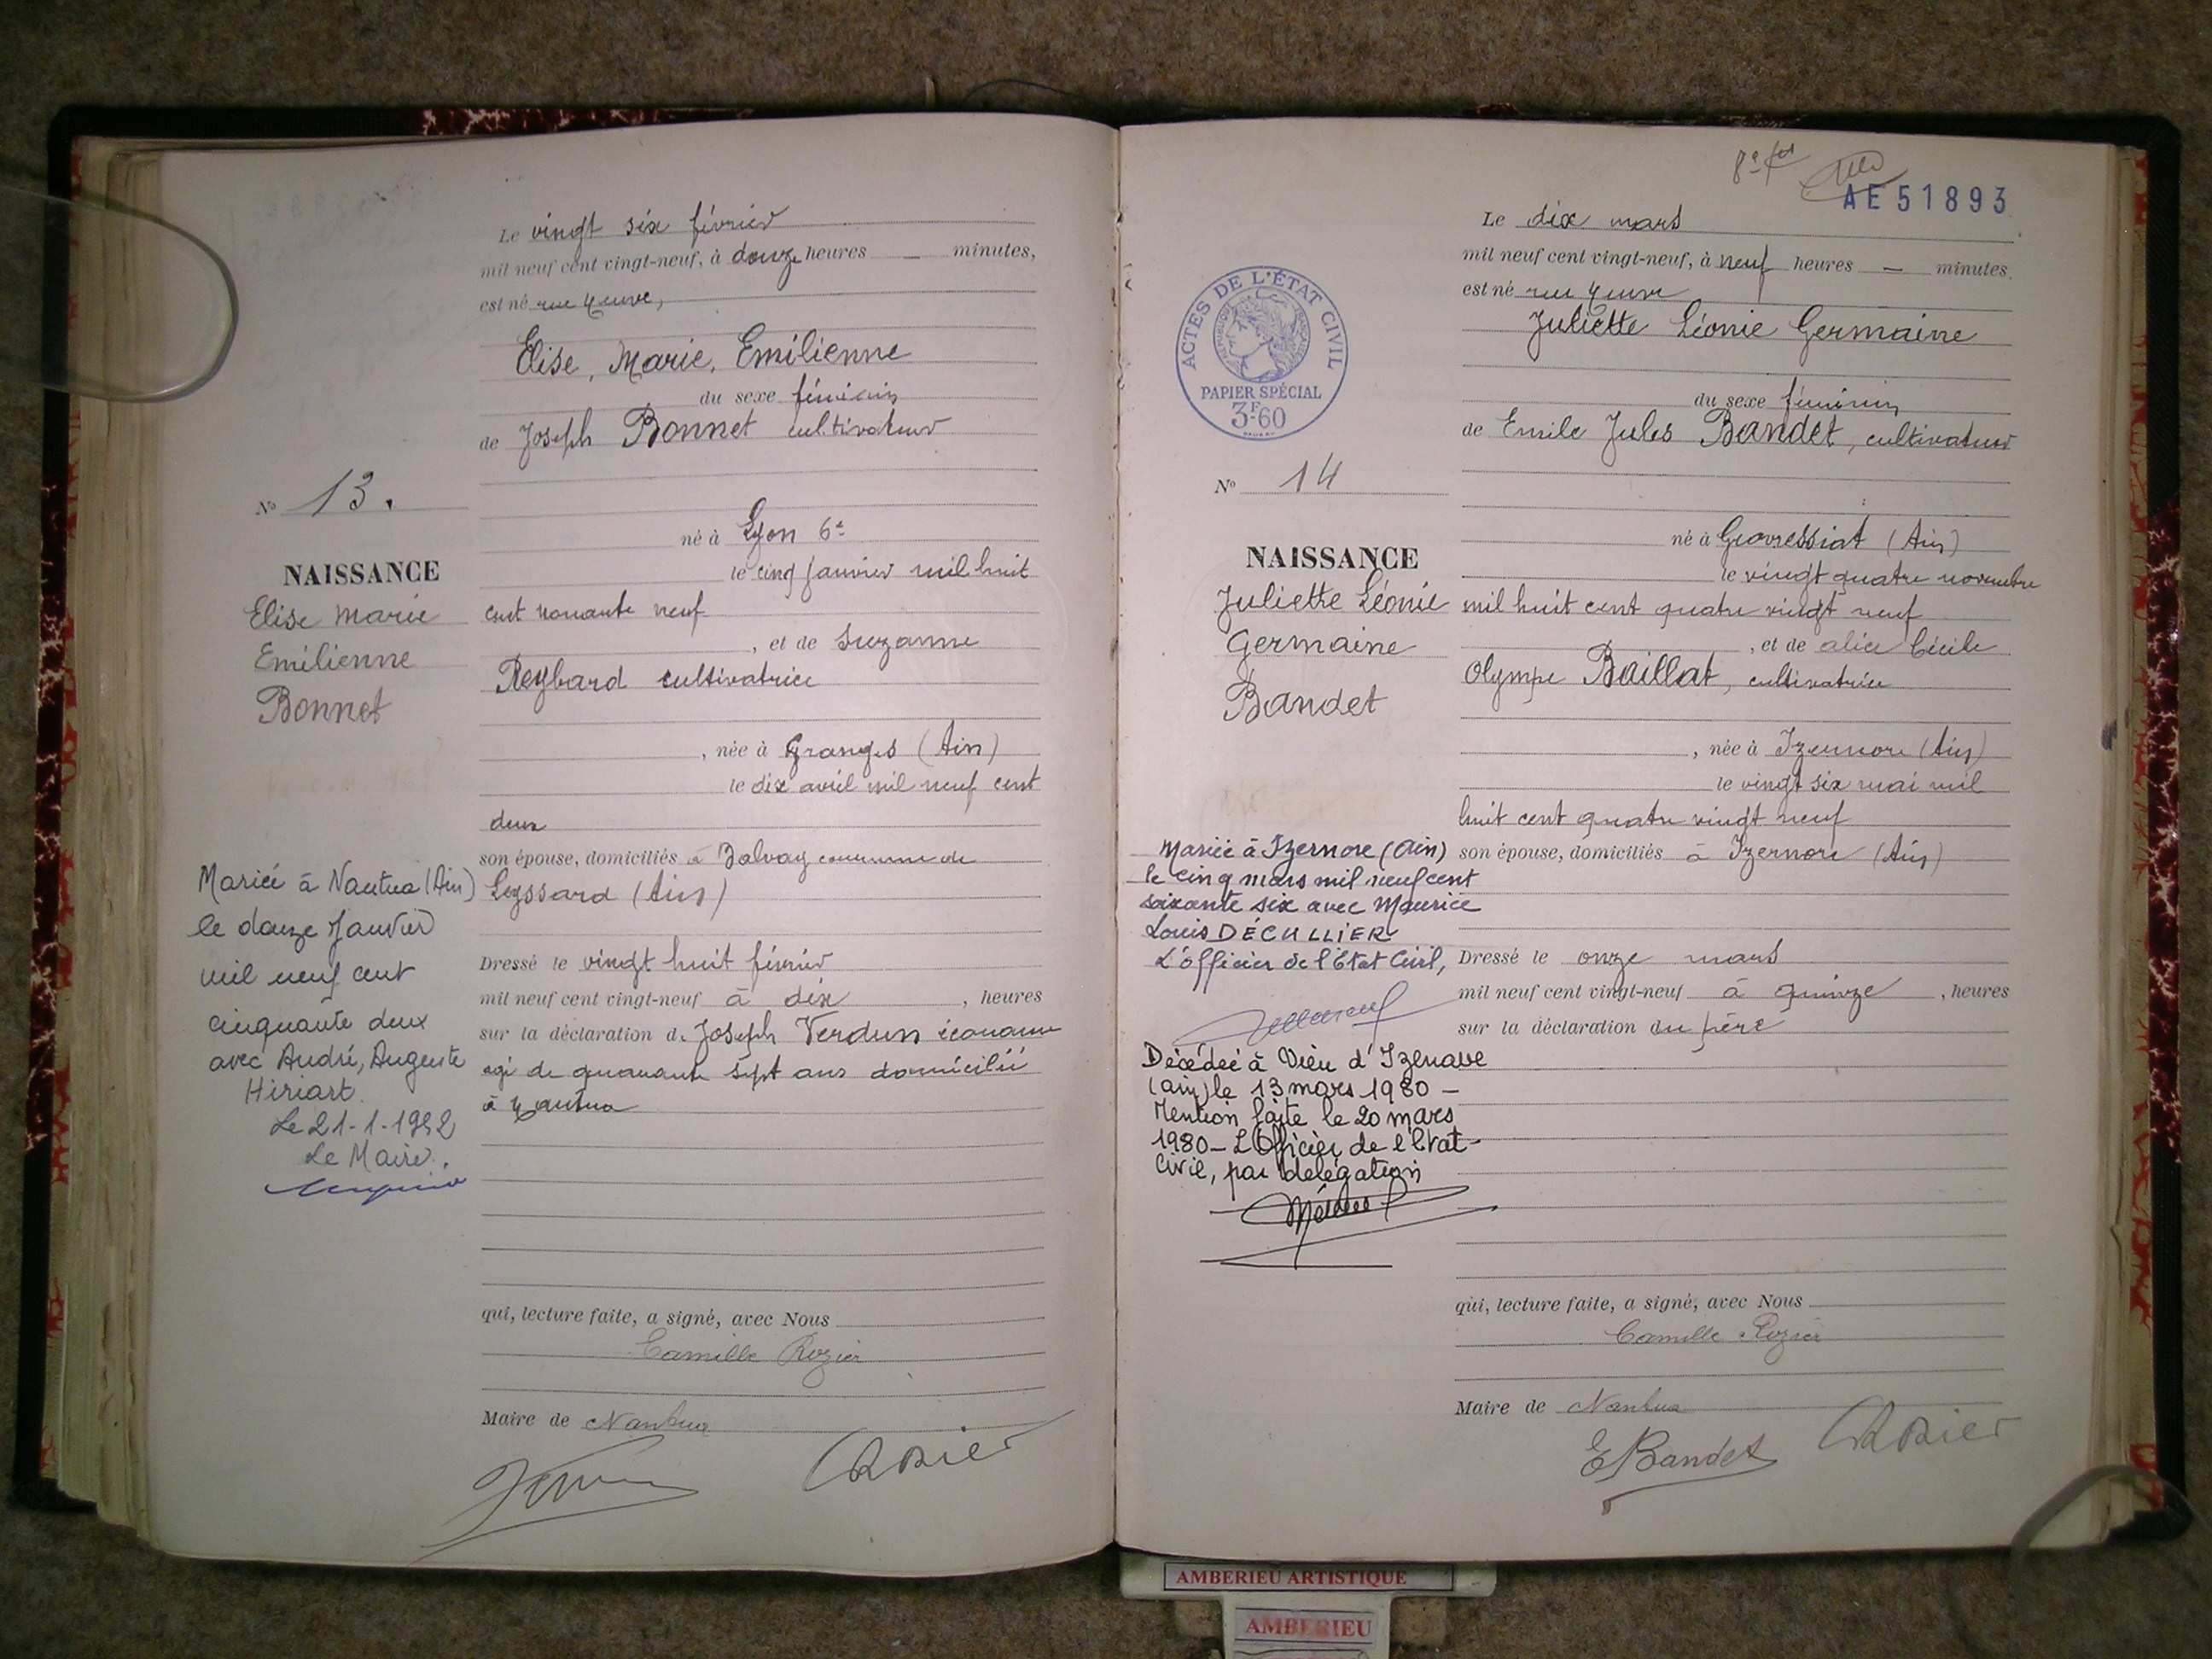 Le vingt six février
mil neuf cent vingt-neuf, à douze heures — minutes,
est né rue Neuve,
Elise, Marie, Emilienne
du sexe féminin
de Joseph Bonnet cultivateur
né à Lyon 6e
le cinq janvier mil huit
cent nonante neuf
, et de Suzanne
Reybard cultivatrice
, née à Granges (Ain)
le dix avril mil neuf cent
deux
son épouse, domiciliés à Balvay commune de
Leyssard (Ain)
Dressé le vingt huit février
mil neuf cent vingt-neuf à dix , heures
sur la déclaration de Joseph Verdun économe
agé de quarante sept ans domicilié
à Nantua
qui, lecture faite, a signé, avec Nous
Camille Rozier
Maire de Nantua
CRozier
No 13.
NAISSANCE
Elise Marie
Emilienne
Bonnet
Mariée à Nantua (Ain)
le douze Janvier
mil neuf cent
cinquante deux
avec André, Auguste
Hiriart.
Le 21-1-1952
Le Maire.
8e fet
AE 51893
Le dix mars
mil neuf cent vingt-neuf, à neuf heures — minutes.
est né rue Neuve
Juliette Léonie Germaine
du sexe féminin
de Emile Jules Bandet, cultivateur
né à Géovressiat (Ain)
le vingt quatre novembre
mil huit cent quatre vingt neuf
, et de alice Cécile
Olympe Baillat, cultivatrice
, née à Izernore (Ain)
le vingt six mai mil
huit cent quatre vingt neuf
son épouse, domiciliés à Izernore (Ain)
Dressé le onze mars
mil neuf cent vingt-neuf à quinze , heures
sur la déclaration du père
qui, lecture faite, a signé, avec Nous
Camille Rozier
Maire de Nantua
EBandet CRozier
ACTES DE L'ÉTAT CIVIL
RÉPUBLIQUE FRANÇAISE
PAPIER SPÉCIAL
3F60
No 14
NAISSANCE
Juliette Léonie
Germaine
Bandet
Mariée à Izernore (Ain)
le cinq mars mil neuf cent
soixante six avec Maurice
Louis DÉCULLIER
L'officier de l'Etat Civil,
Décédée à Vieu d'Izenave
(ain) le 13 mars 1980 —
Mention faite le 20 mars
1980 — L'Officier de l'Etat-
Civil, par délégation
AMBERIEU ARTISTIQUE
AMBERIEU